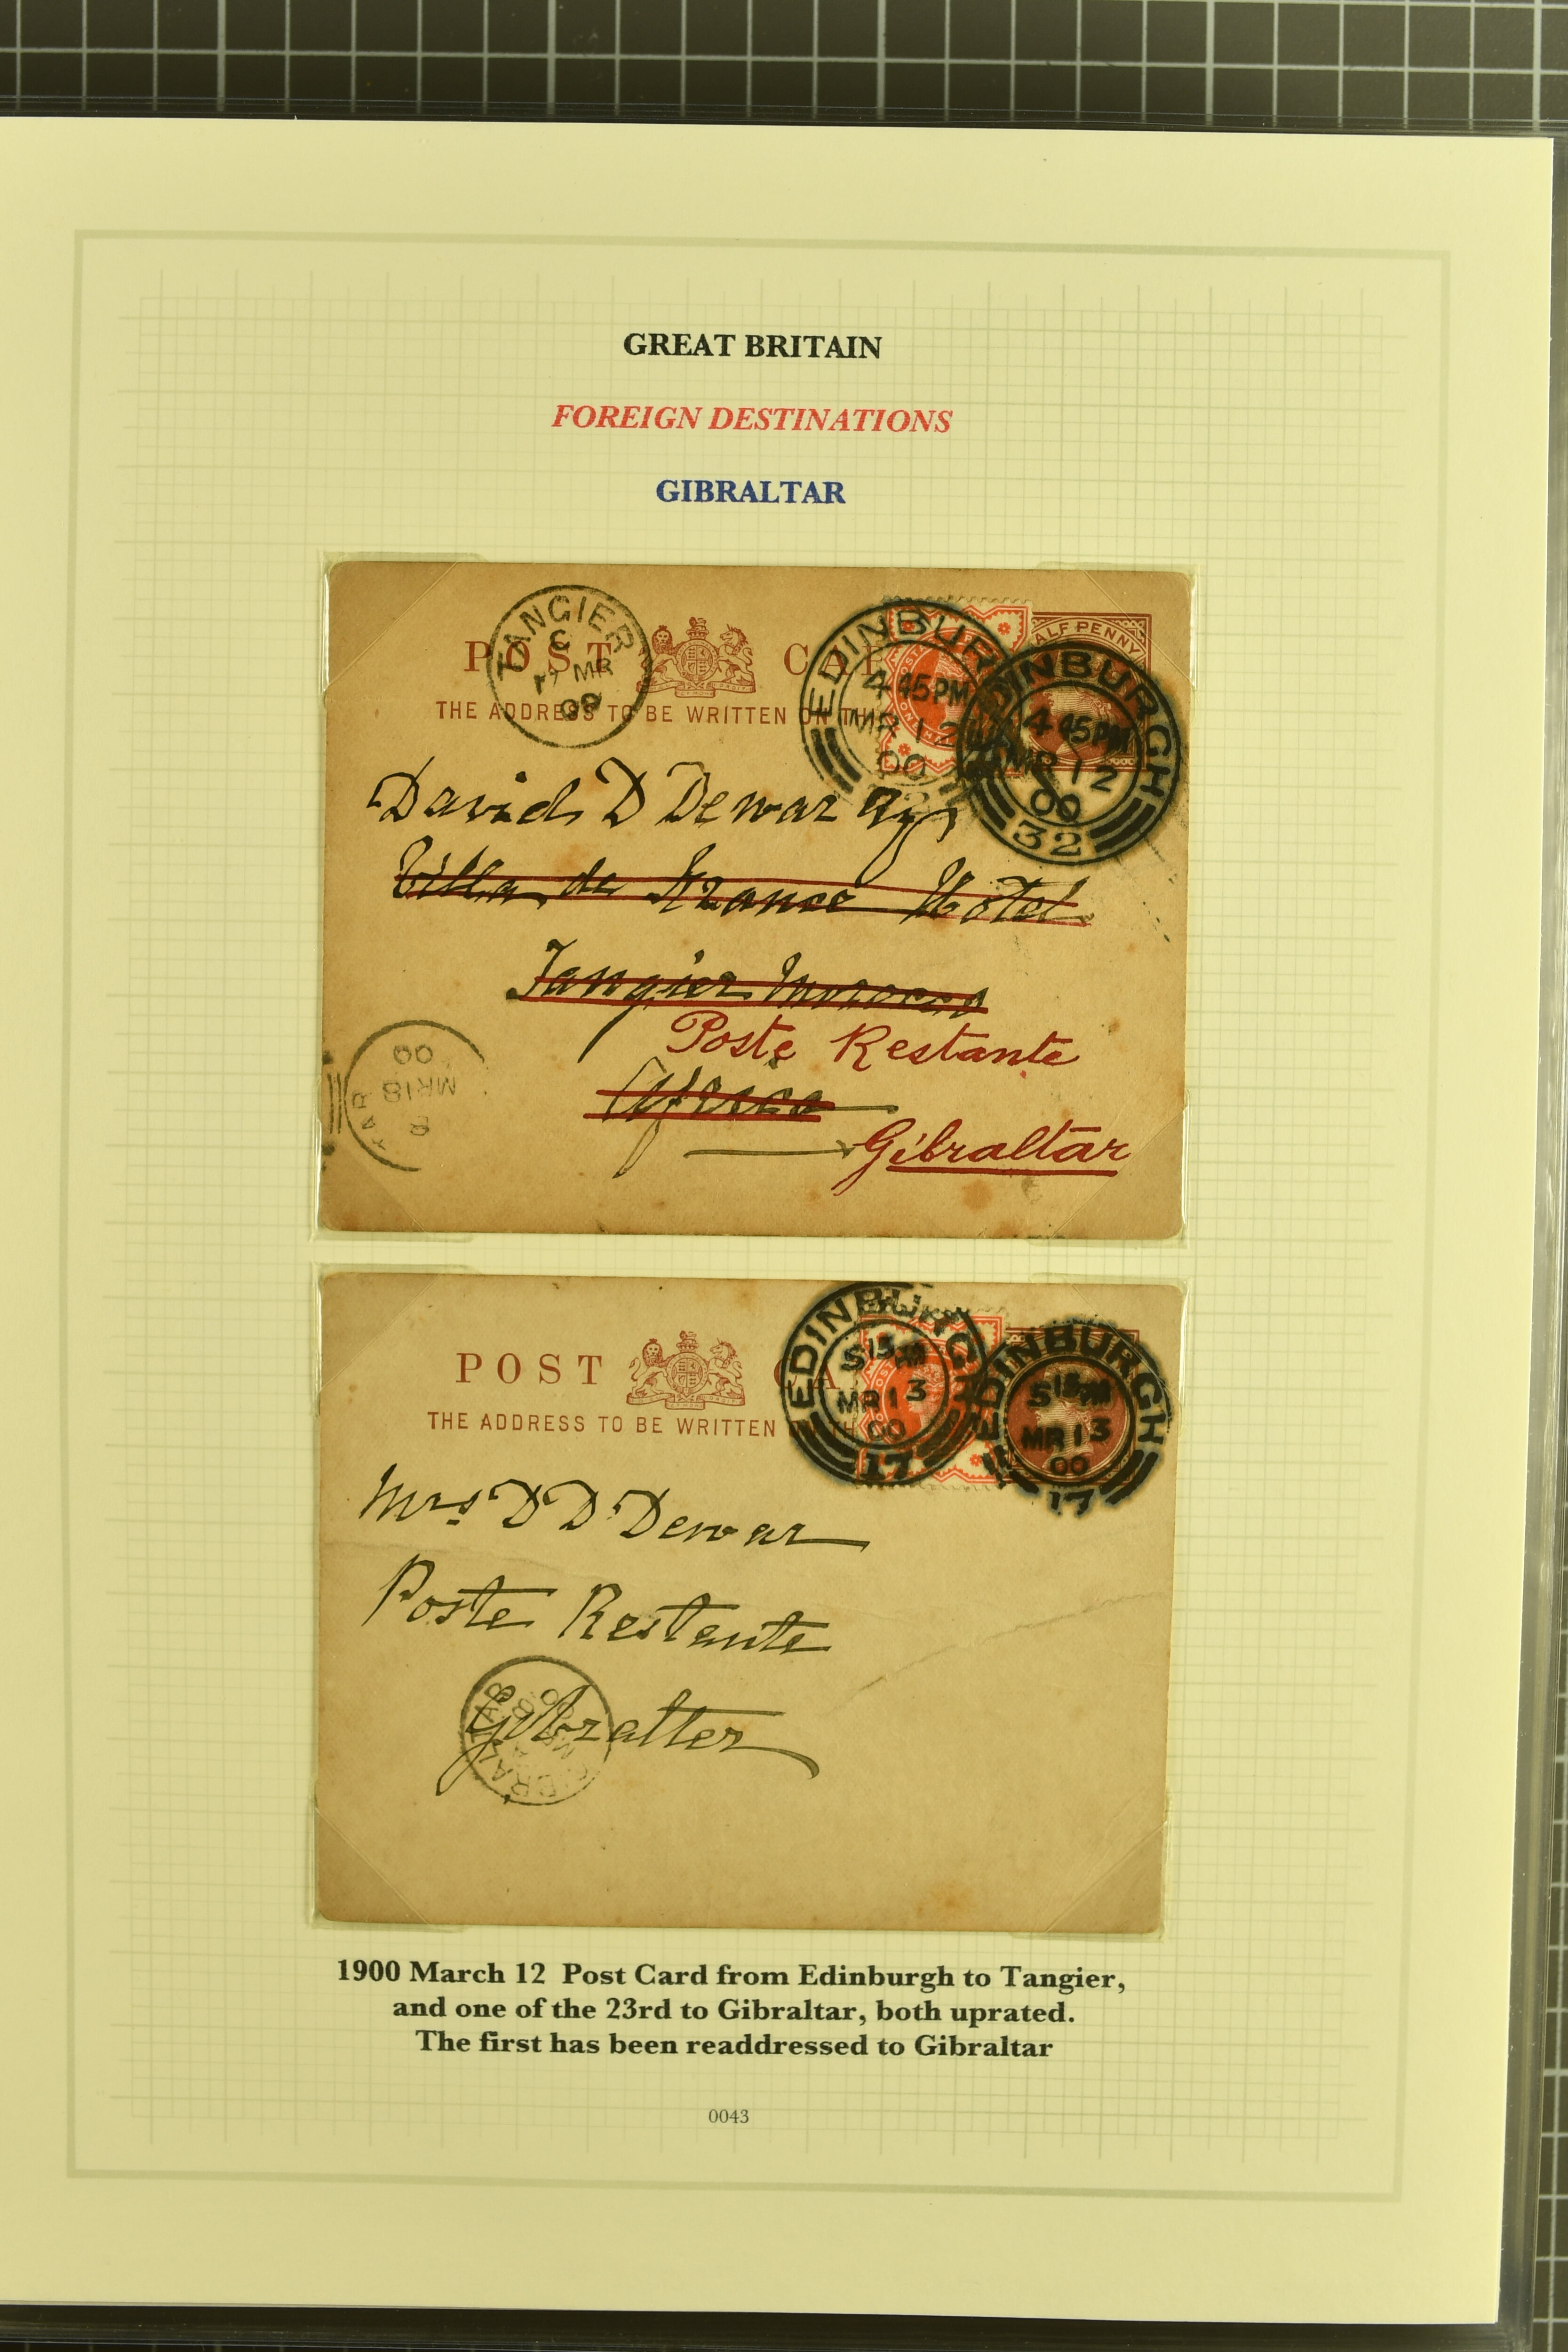 GREAT BRITAIN
FOREIGN DESTINATIONS
GIBRALTAR
TANGIER
C
17 MR
00
POST CA
THE ADDRESS TO BE WRITTEN ON TH
HALF PENNY
EDINBURGH
4 45PM
MR 12
00
EDINBURGH
4 45PM
MR 12
00
32
David D Dewar Esq
Villa de France Hotel
Tangier Morocco
Poste Restante
Africa
Gibraltar
00
MR18
POST CA
THE ADDRESS TO BE WRITTEN
EDINBURGH
5 15PM
MR 13
00
17
EDINBURGH
5 15PM
MR 13
00
17
Mrs D D Dewar
Poste Restante
Gibralter
GIBRALTAR
1900 March 12 Post Card from Edinburgh to Tangier,
and one of the 23rd to Gibraltar, both uprated.
The first has been readdressed to Gibraltar
0043